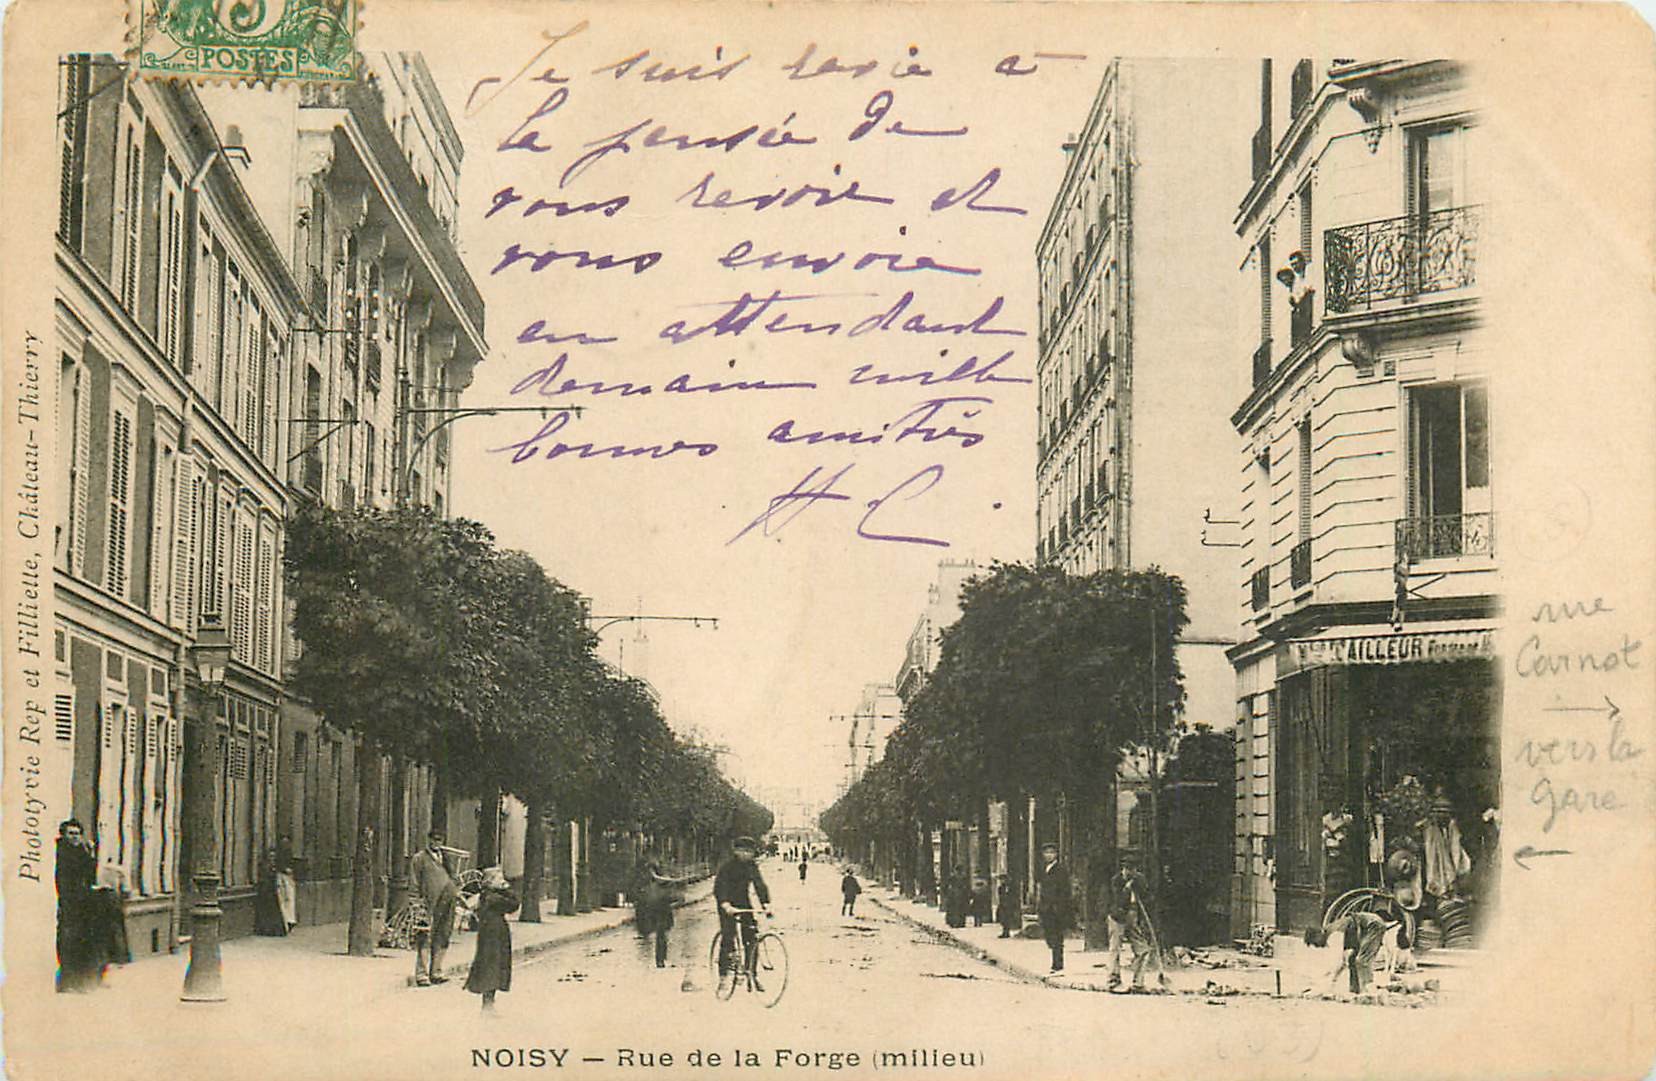 5
POSTES
Je suis ravie a
la pensée de
vous revoir et
vous envoie
en attendant
demain mille
bonnes amitiés
H C.
Phototyvie Rep et Fillielle, Château-Thierry
TAILLEUR
rue
Carnot
→
vers la
gare
←
NOISY — Rue de la Forge (milieu)